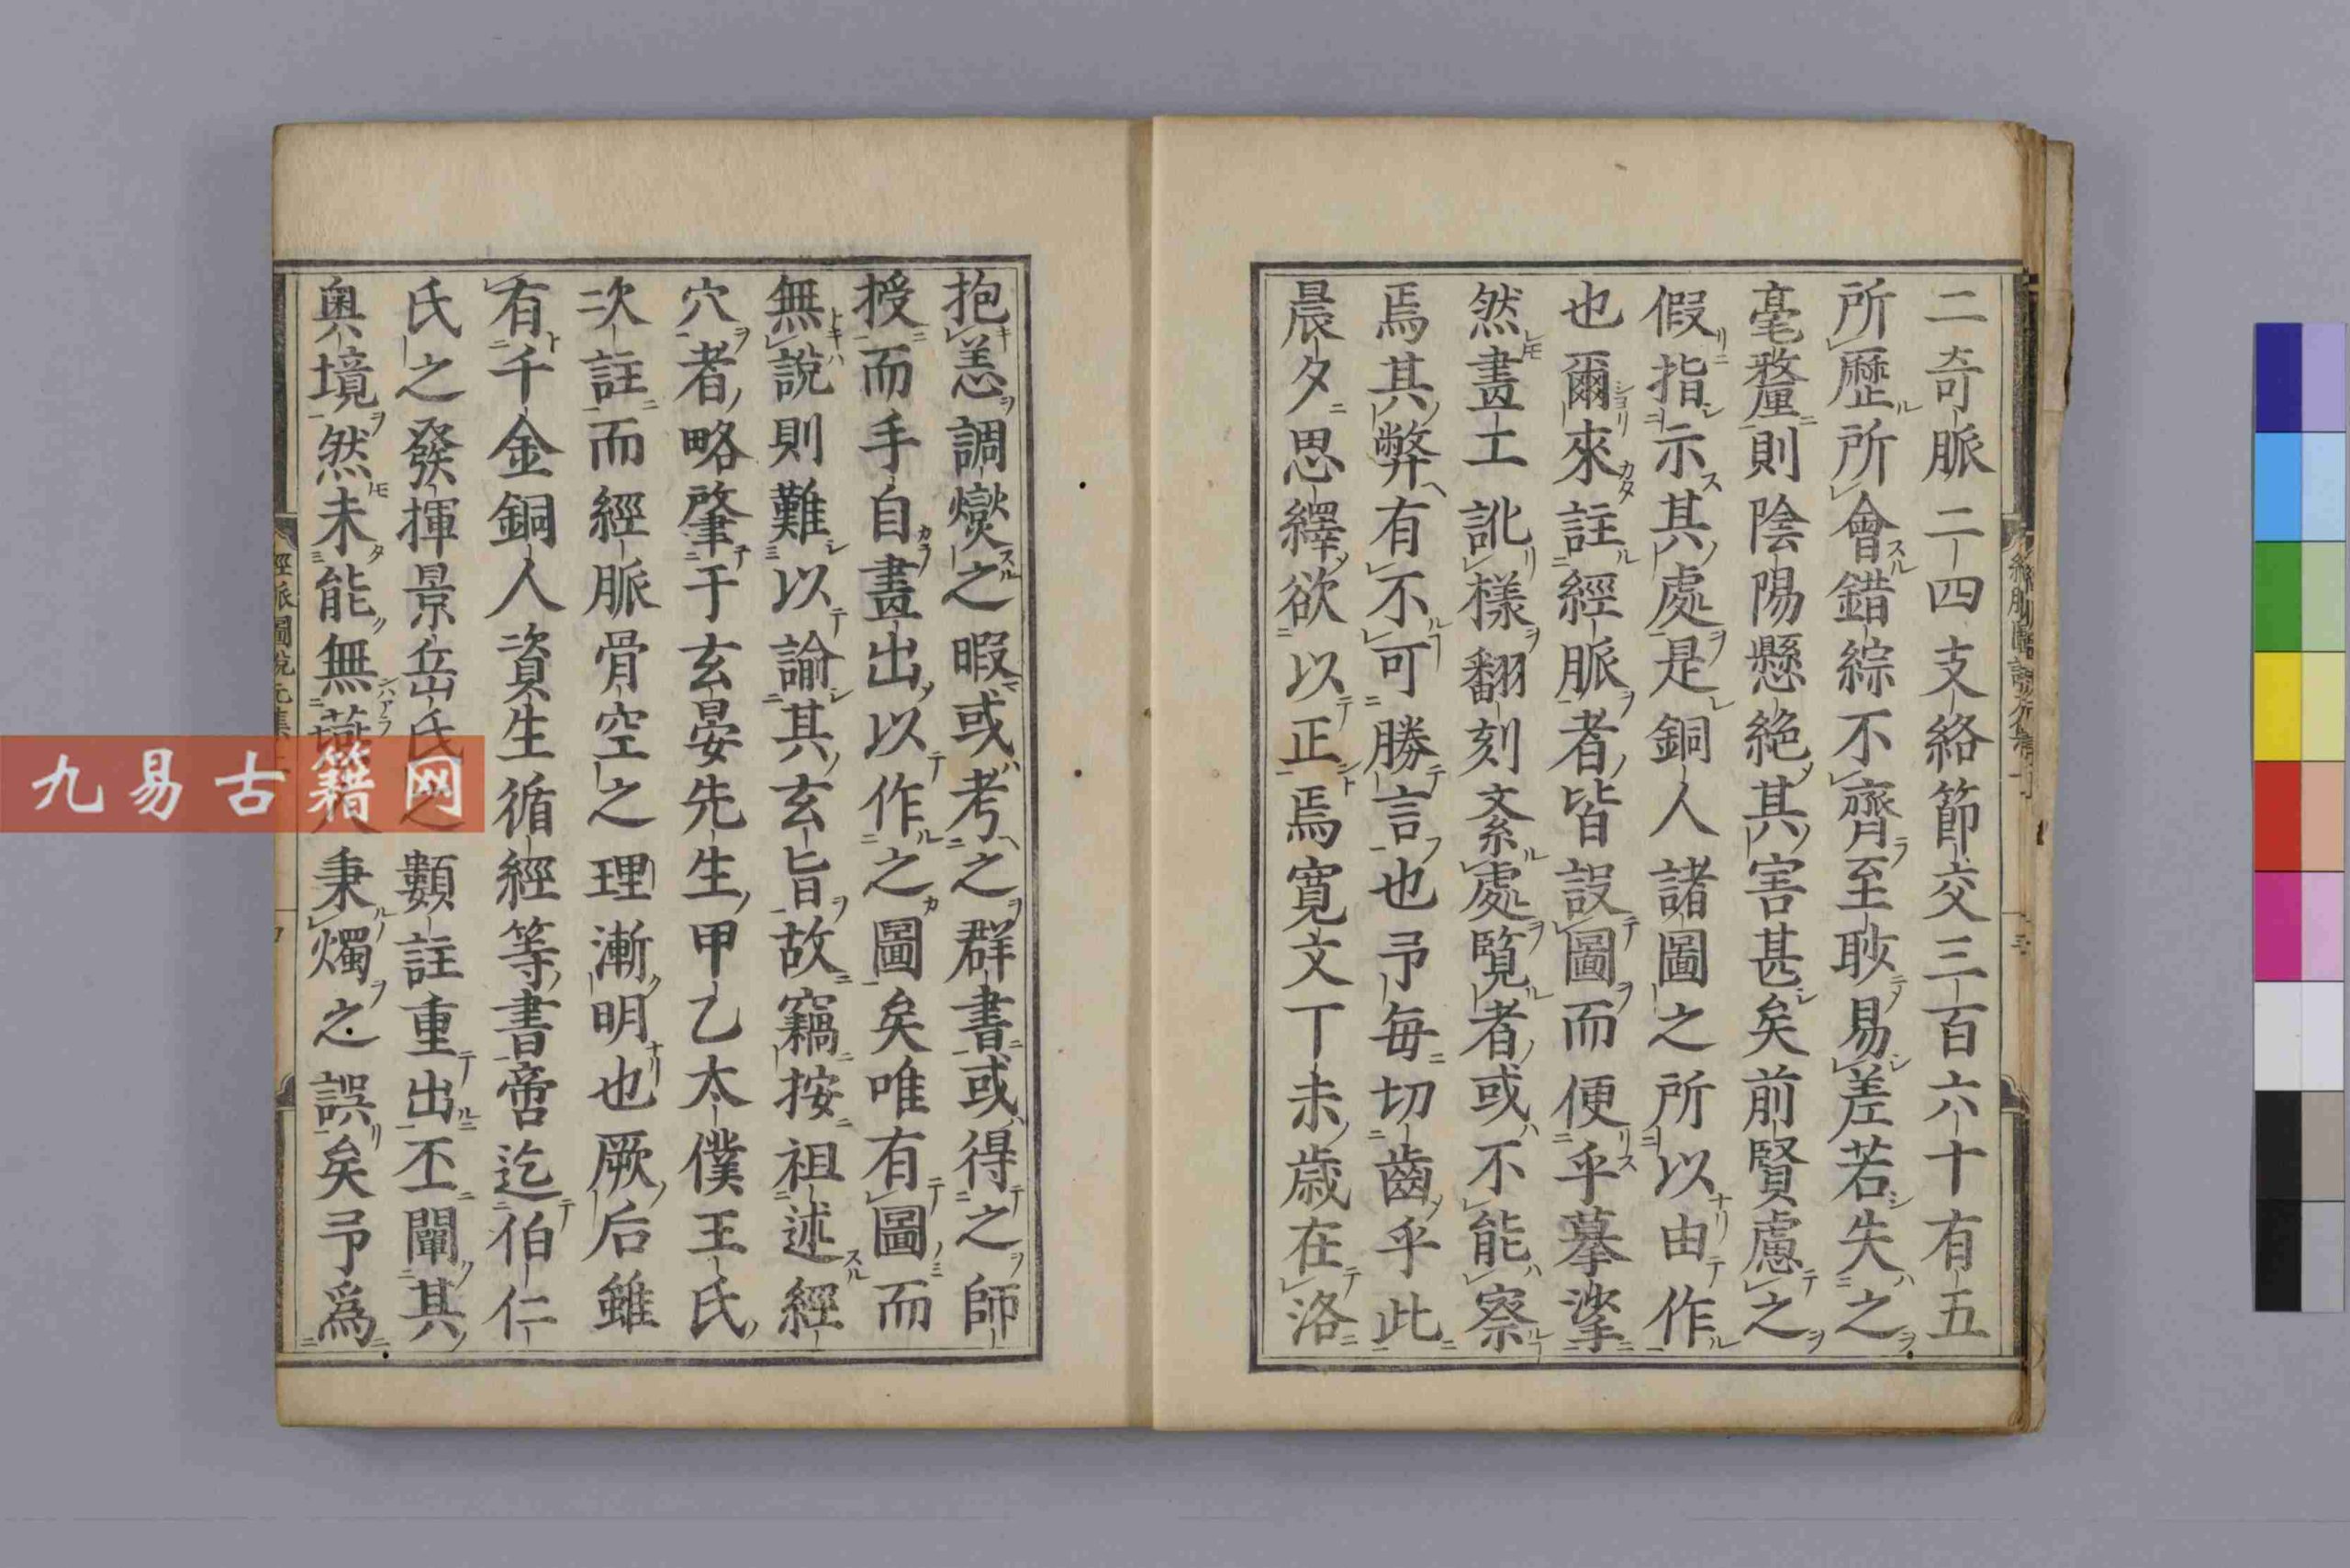 二奇脈二四支絡節交三百六十有五
所歷所會錯綜不齊至眇易差若失之
毫釐則陰陽懸絶其害甚矣前賢慮之
假指示其處是銅人諸圖之所以由作
也爾來註經脈者皆設圖而便乎摹挲
然畫工訛樣翻刻紊處覽者或不能察
焉其弊有不可勝言也予每切齒乎此
晨夕思繹欲以正焉寛文丁未歳在洛
抱恙調爕之暇或考之群書或得之師
授而手自畫出以作之圖矣唯有圖而
無說則難以諭其玄旨故竊按祖述經
穴者略肇于玄晏先生甲乙太僕王氏
次註而經脈骨空之理漸明也厥后雖
有千金銅人資生循經等書啻迄伯仁
氏之發揮景岳氏之類註重出丕闡其
奧境然未能無燕人秉燭之誤矣予爲
經脈圖說元集
九易古籍网